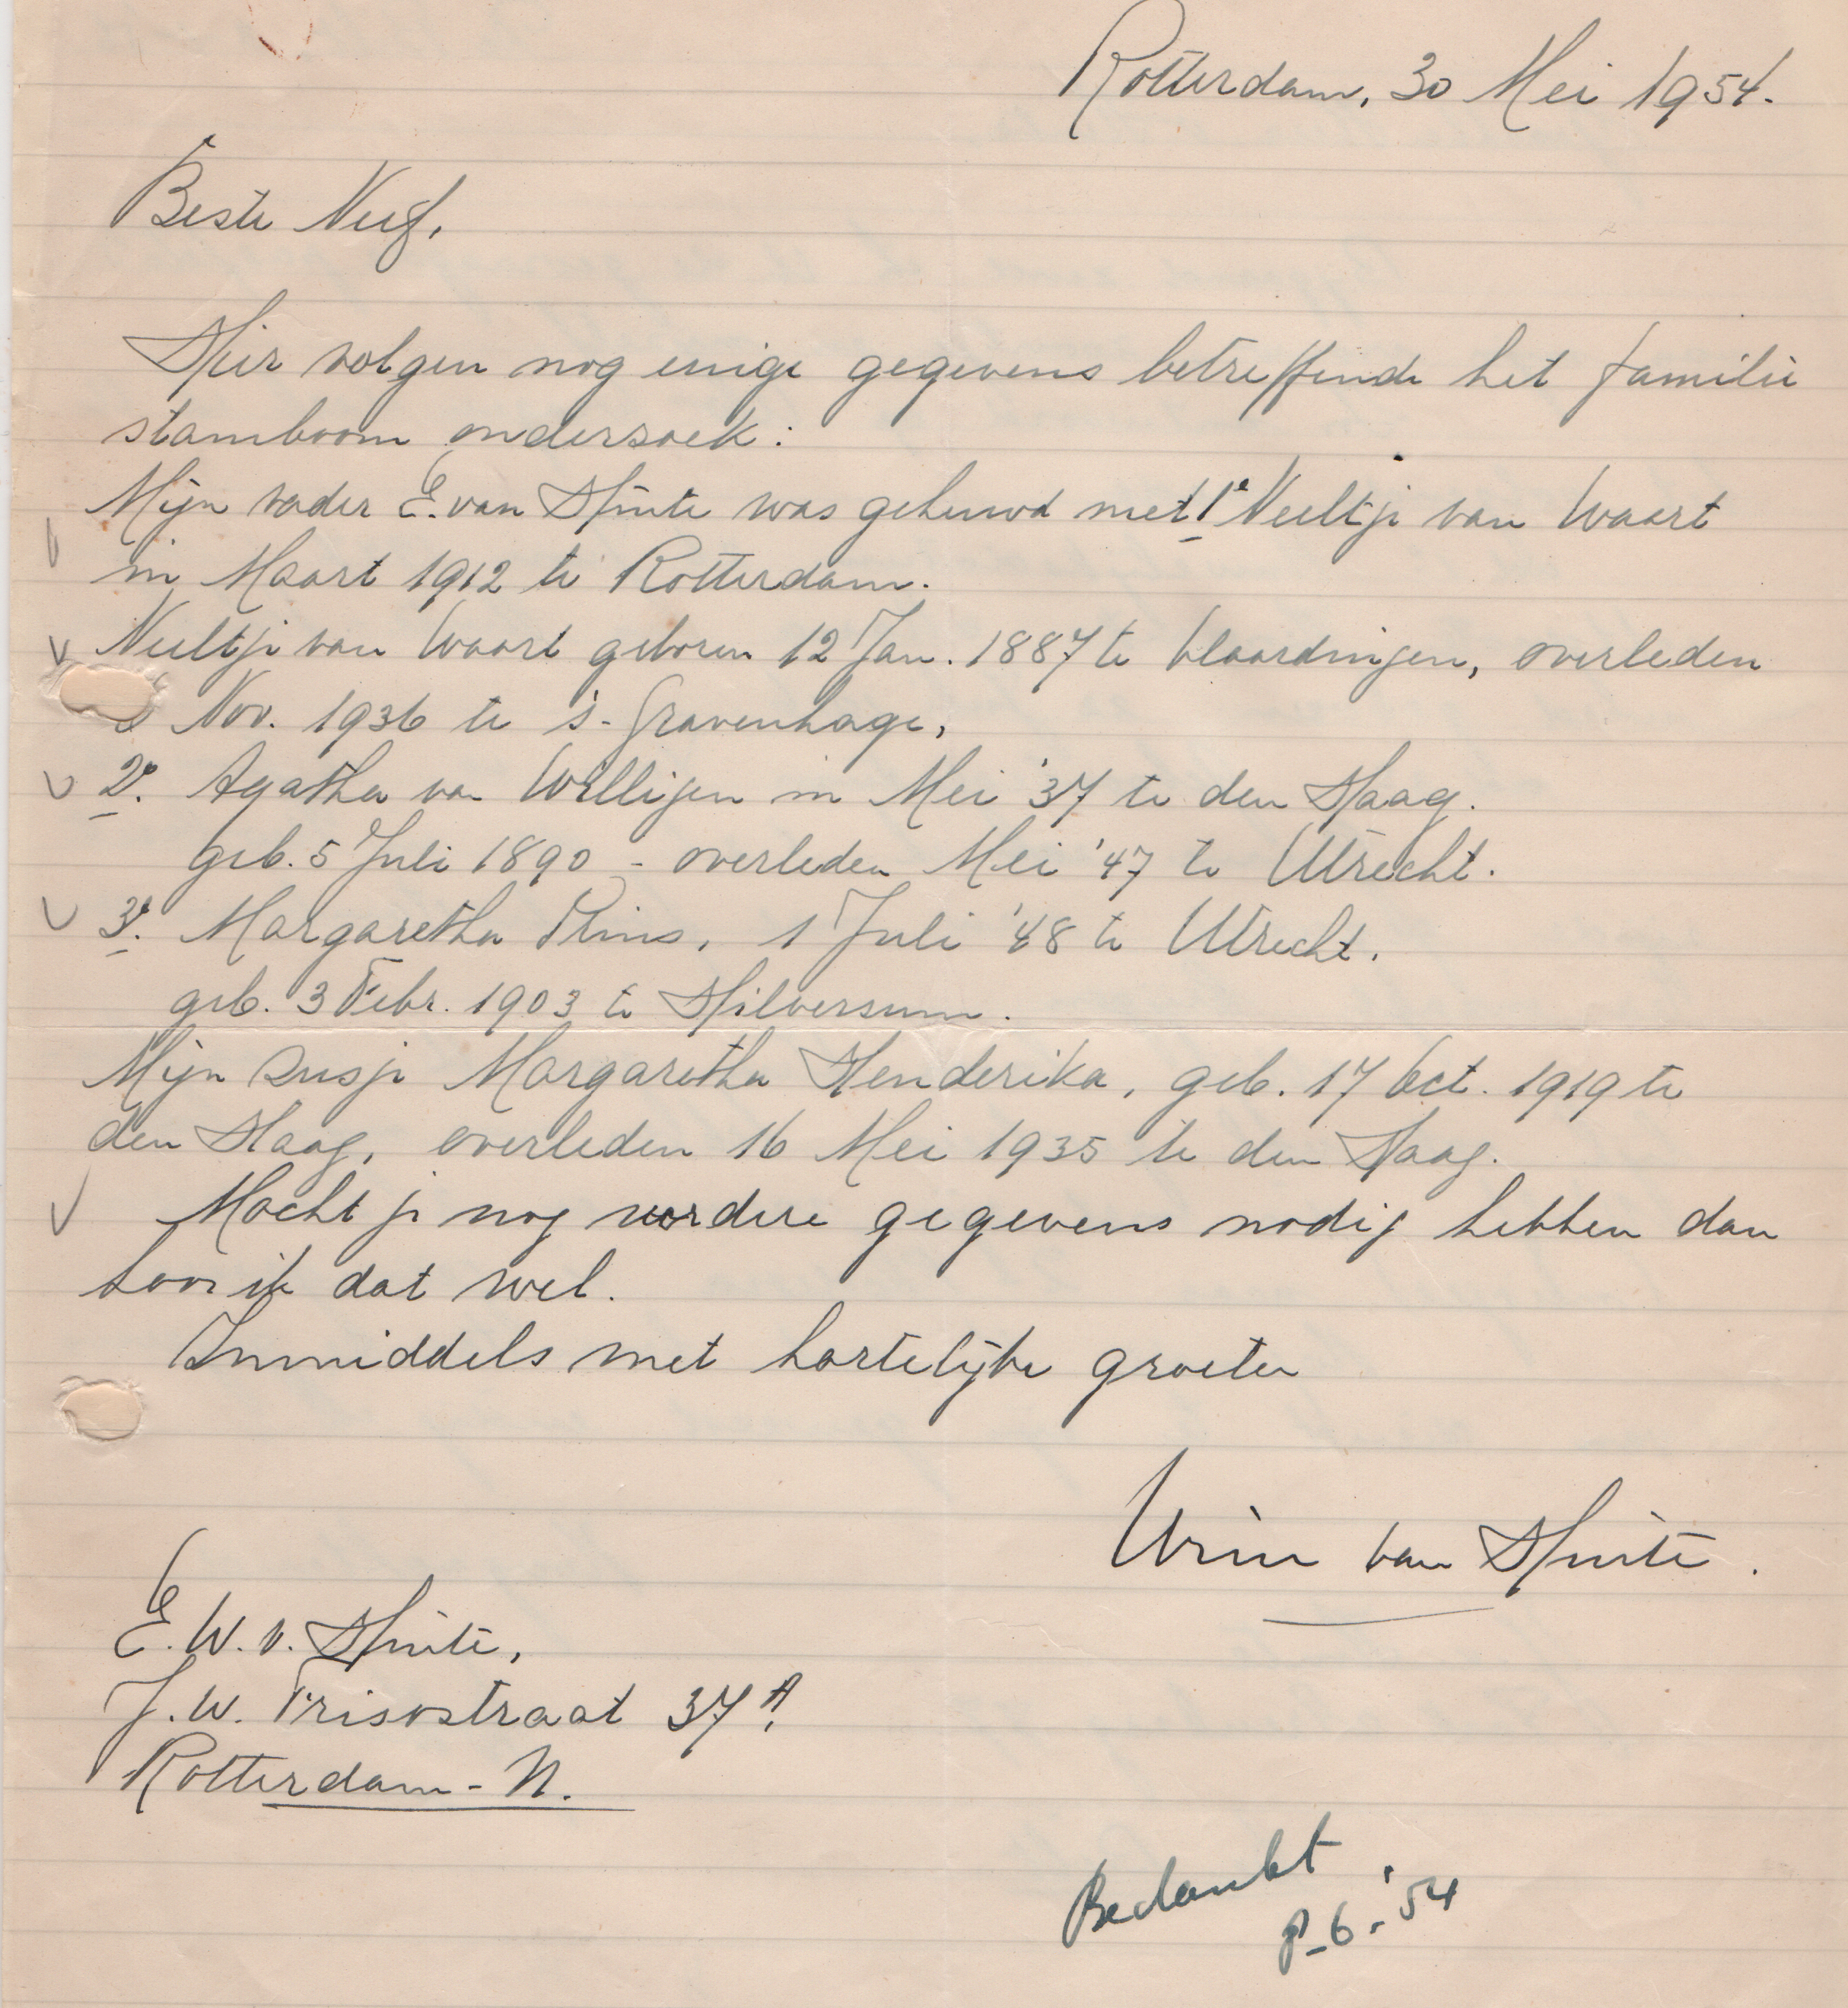 Rotterdam, 30 Mei 1954.
Beste Neef,
Hier volgen nog enige gegevens betreffende het familie
stamboom onderzoek:
Mijn vader E. van Hinte was gehuwd met 1e Neeltje van Waart
in Maart 1912 te Rotterdam.
Neeltje van Waart geboren 12 Jan. 1887 te Vlaardingen, overleden
Nov. 1936 te 's-Gravenhage,
2e. Agatha van Willigen in Mei '37 te den Haag.
geb. 5 Juli 1890 - overleden Mei '47 te Utrecht.
3e. Margaretha Prins, 1 Juli '48 te Utrecht.
geb. 3 Febr. 1903 te Hilversum.
Mijn zusje Margaretha Henderika, geb. 17 Oct. 1919 te
den Haag, overleden 16 Mei 1935 te den Haag.
Mocht je nog verdere gegevens nodig hebben dan
hoor ik dat wel.
Inmiddels met hartelijke groeten
Wim van Hinte.
E. W. v. Hinte,
J. W. Frisostraat 37A,
Rotterdam - N.
Bedankt
6-'54